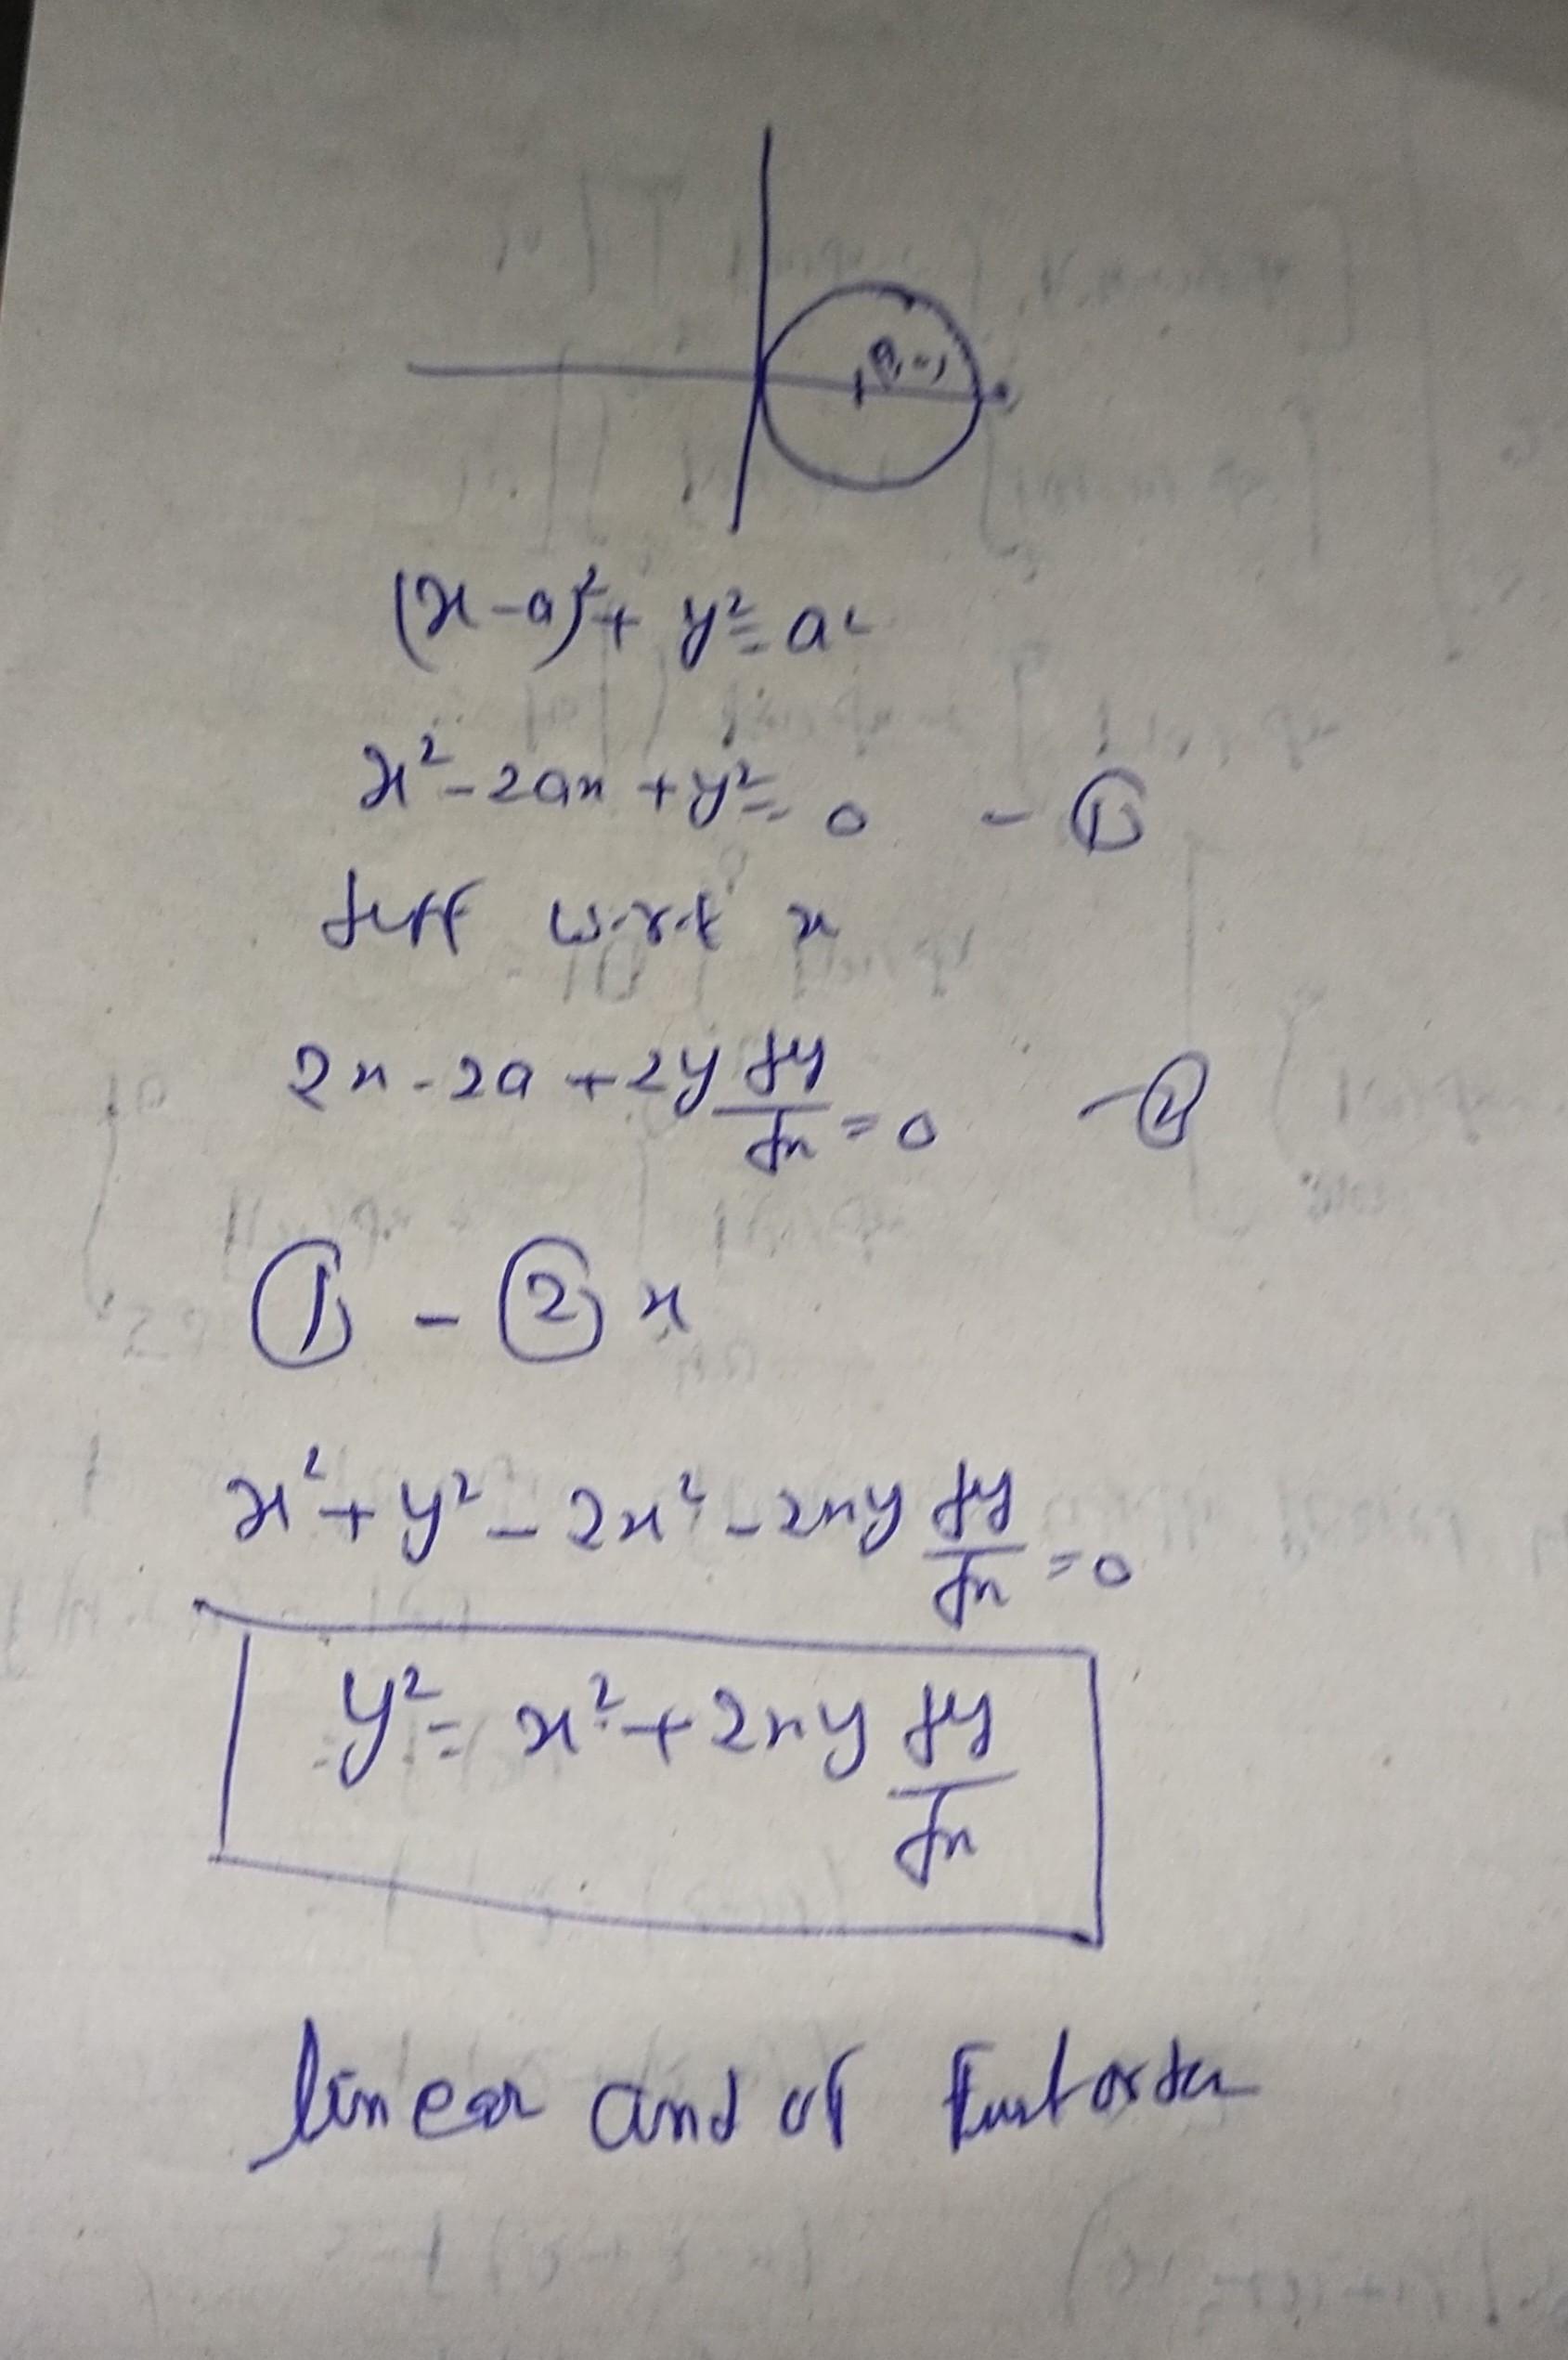 (x-a)²+ y²= a²
x²-2ax +y²= 0 - ①
diff w.r.t x
2x-2a+2y dy/dx =0 -②
① - ② x
x²+y²-2x²-2xy dy/dx =0
y²= x²+2xy dy/dx
linear and of first order